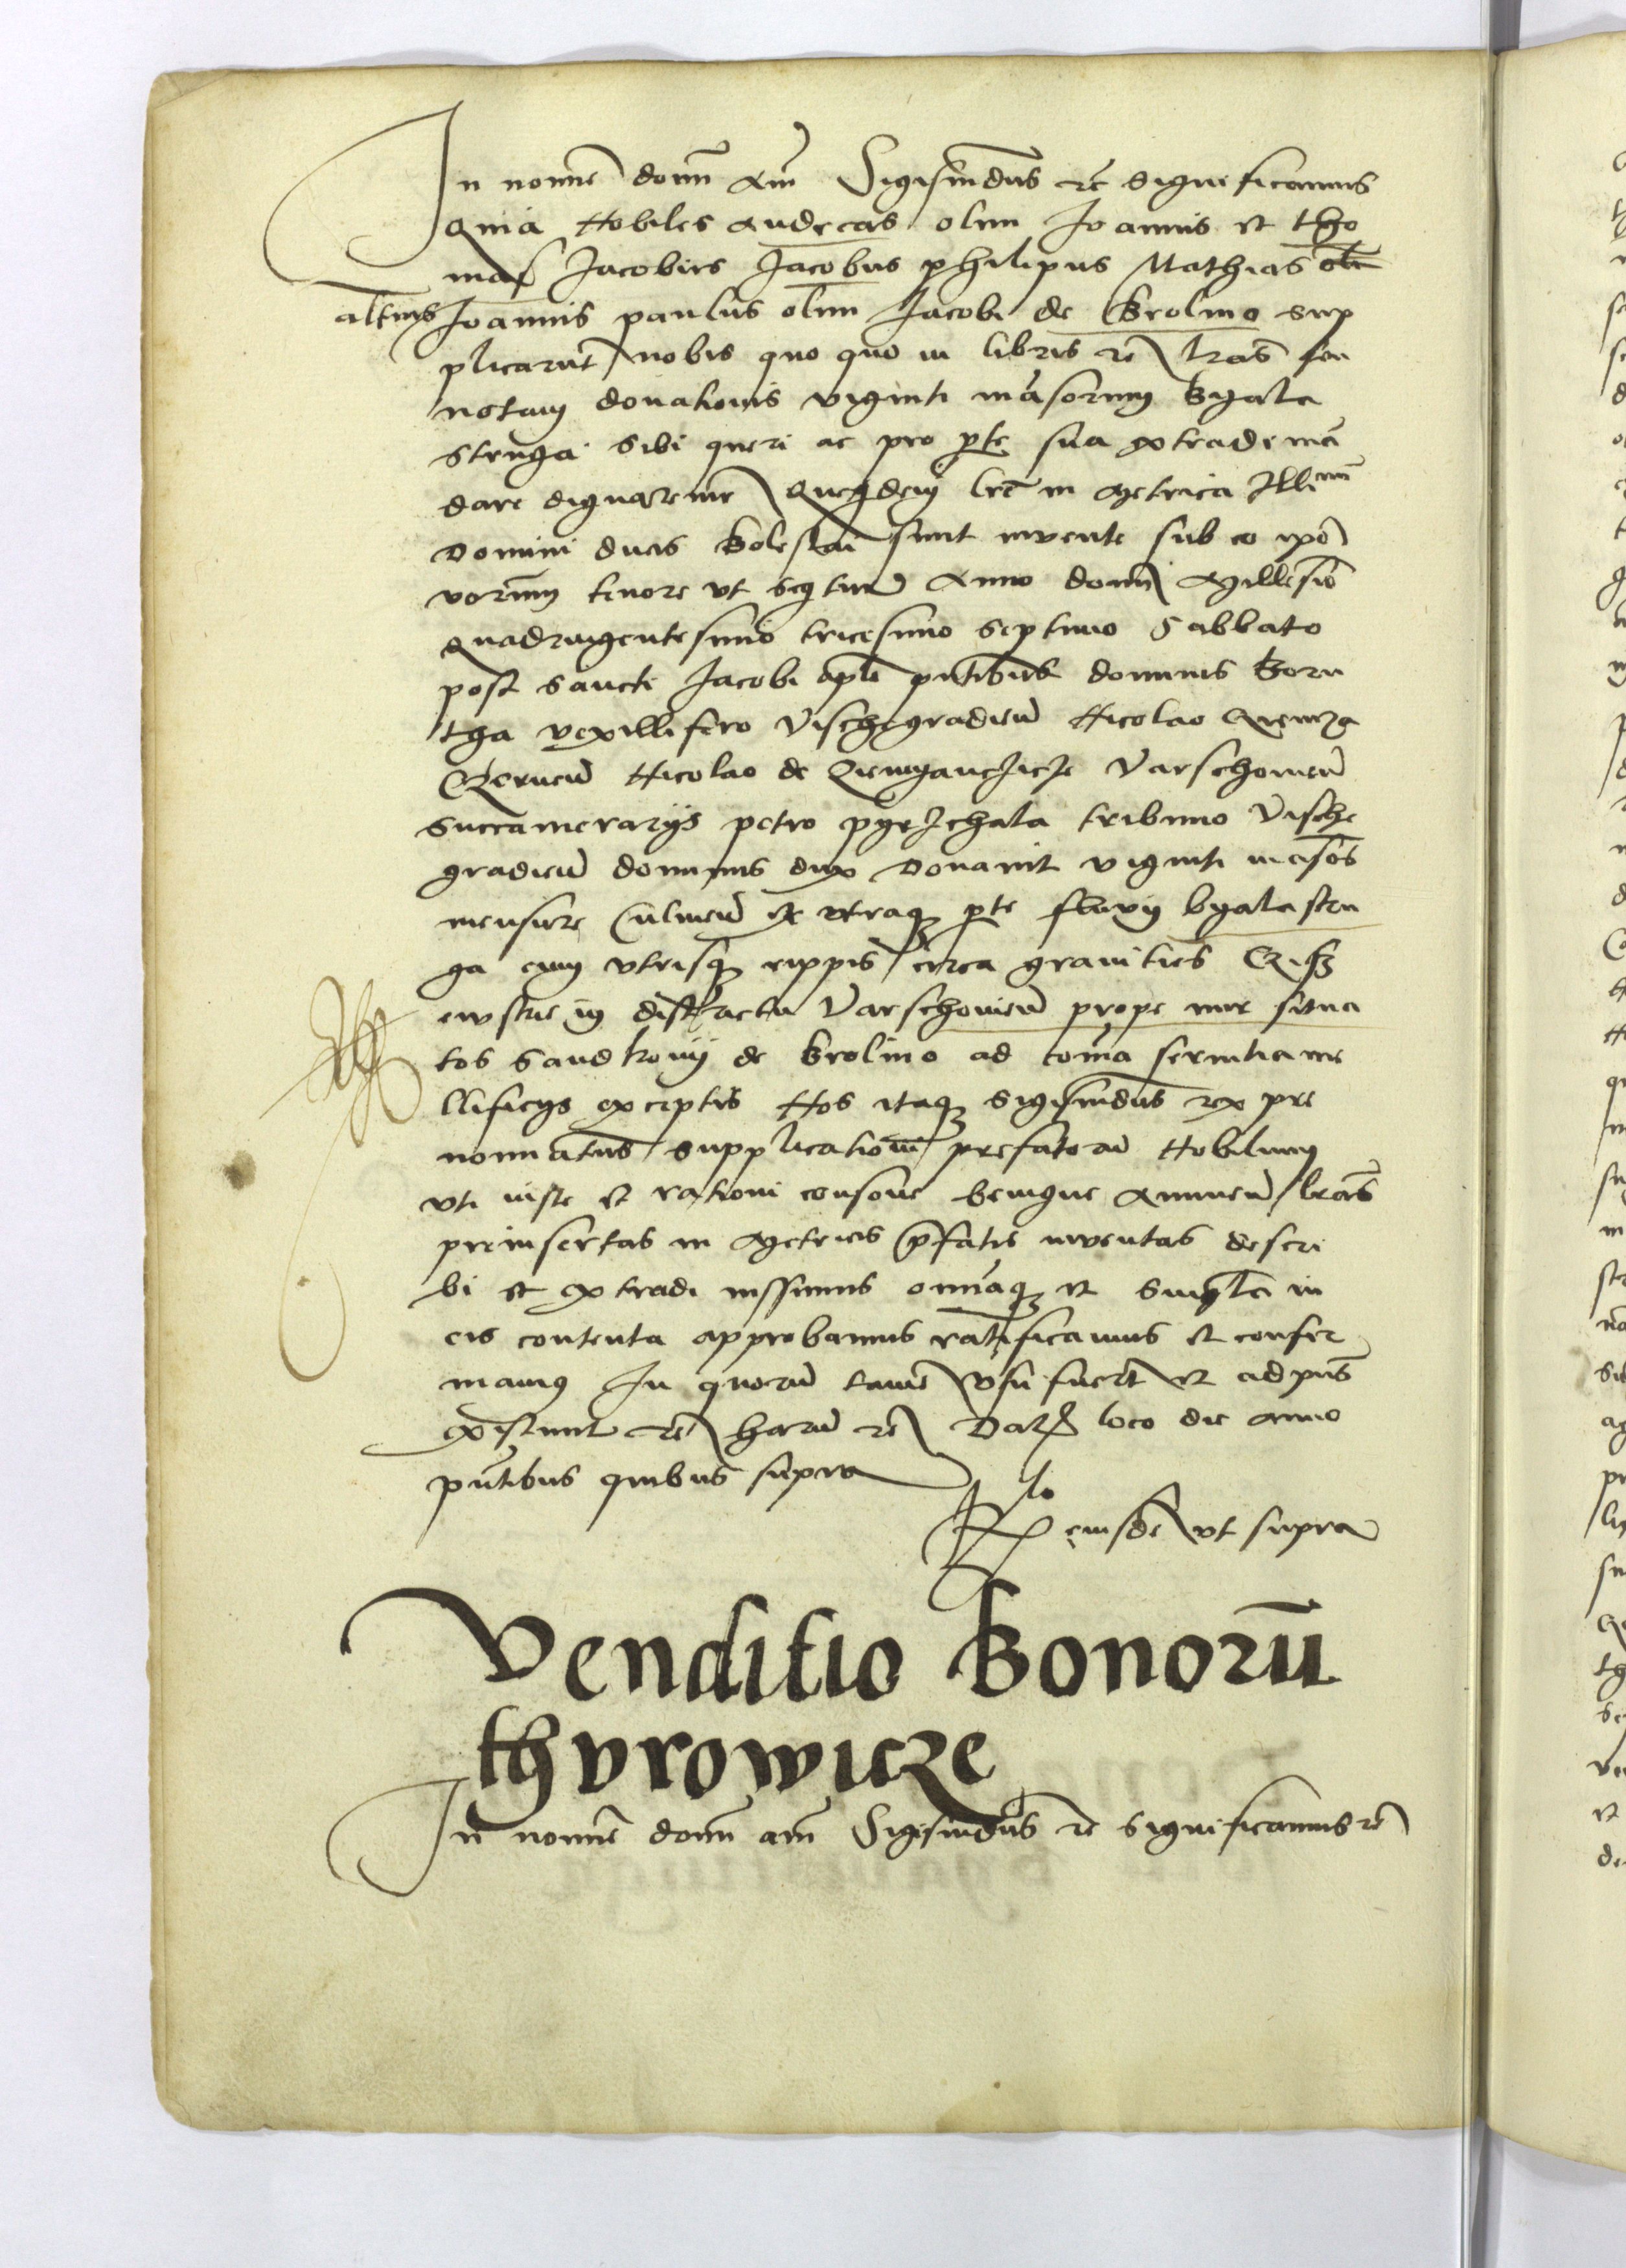 In nomine domini amen Sigismundus etc significamus
Quia Nobiles Andreas olim Joannis et tho
mas Jacobirs Jacobus philipus Mathias
alterius Joannis paulus olim Jacobi de Brolino sup
plicarunt nobis quo quo in libris etc lras seu
notam donationis viginti mansorum Byala
struga sibi queri ac pro pte sua extradi man
dare dignaremur Quequidem lre in Metrica Illmi
Domini ducis Boleslai sunt invente sub eo ipso
verorum tenore ut sequitur Anno domini Millesimo
quadringentesimo tricesimo septimo Sabbato
post sancti Jacobi apli pntibus dominis Boru
tha vexillifero Vischegradien Nicolao
Czernen Nicolao de Varschovien
succamerarijs petro tribuno Vische
gradien dominus dux Donavit viginti mansos
mensure Culmen ex utraque pte fluvij byalastru
ga cum utrisque rippis circa granities
in districtu Varschovien prope situa
tos Sandkonij de Brolino ad servitia me
llificijs exceptis Nos itaque Sigismundus rex pre
nominatus supplicationi prefatorum Nobilium
uti iuste et rationi consone benigne Annuen lras
preinsertas in Metricis prefatis inventas descri
bi et extradi iussimus omniaque et singula in
eis contenta approbamus ratificamus et confir
mamus In quorum tamen usu fuerunt et ad pns
existunt etc harum etc Dat loco die anno
pntibus quibus supra
Rlo eiusdem ut supra
Venditio Bonorū
thurowicze
In nomine domini amen Sigismundus etc significamus etc